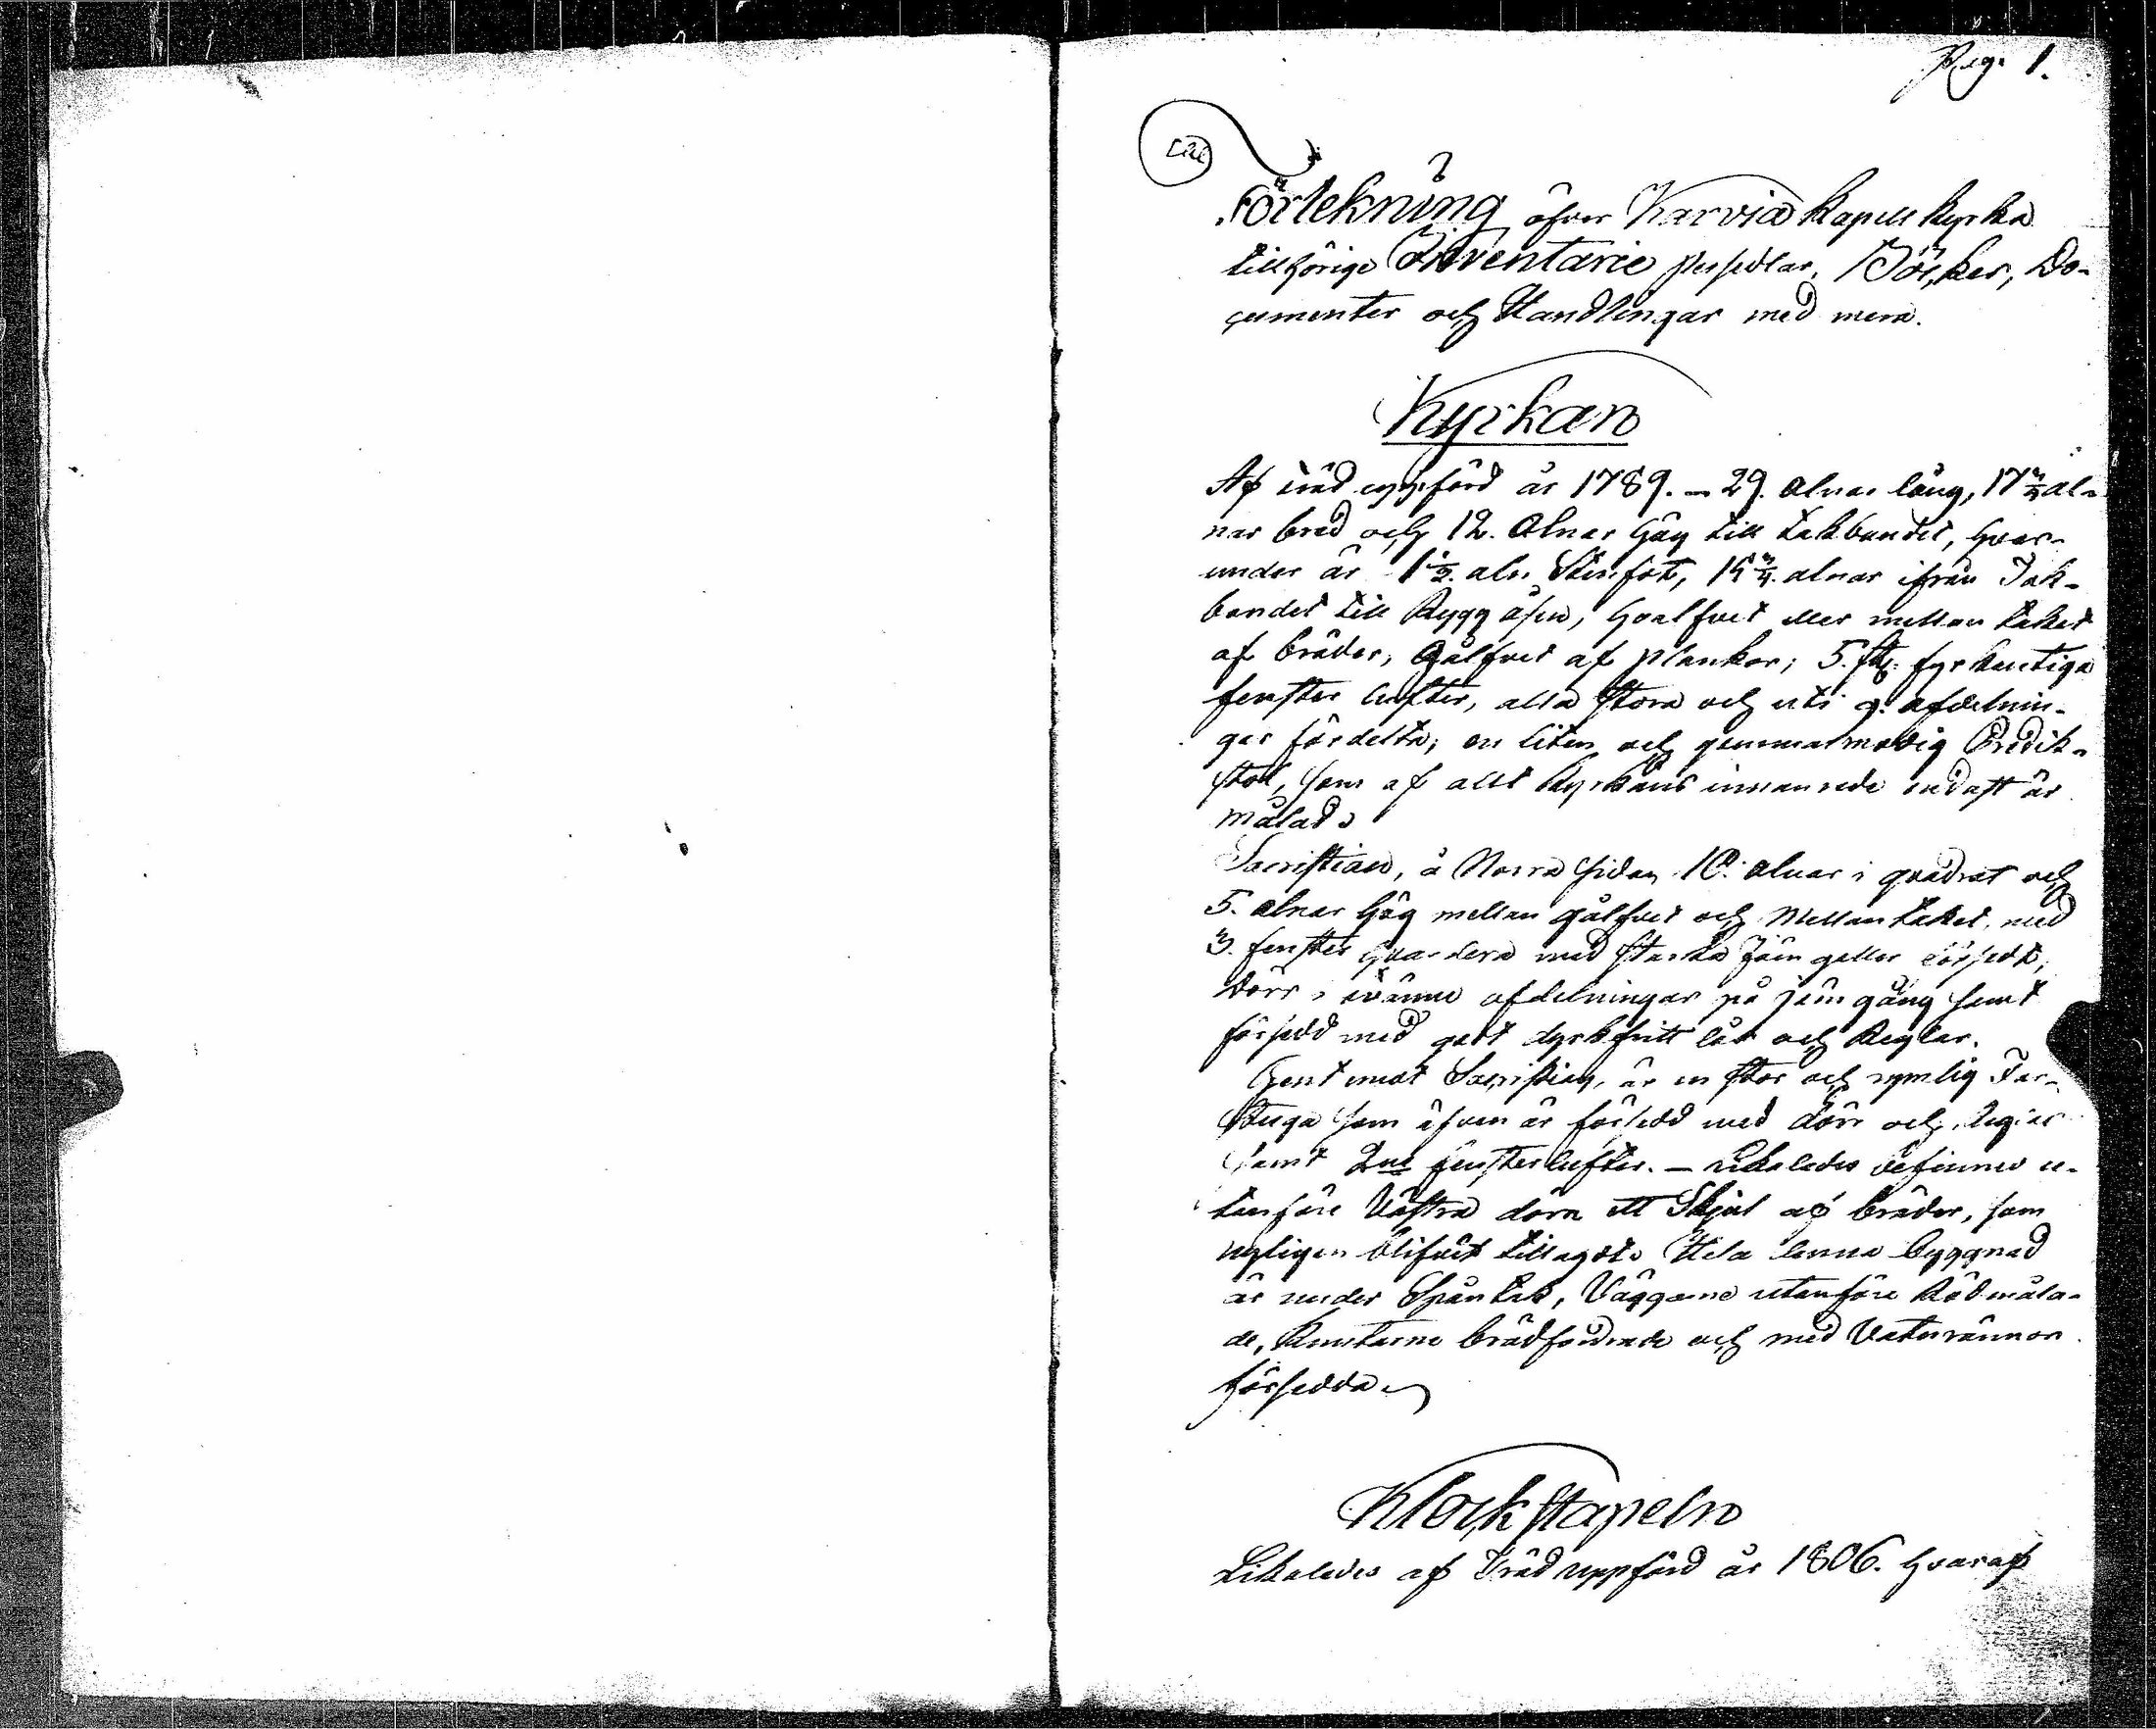 Pag: 1.
Förtekning öfver Karvia Kapell kyrka
tillhörige Inventarie persedlar, Böcker, Do-
cumenter och Handlingar med mera.
Kyrkan
Af träd uppförd år 1789. – 29. alnar lång, 17 3/4 al-
nar bred och 12. alnar hög till takbandet, hvar-
under är 1 1/2. aln Stenfot, 14 3/4. alnar ifrån Tak-
bandet till Ryggåsen, hvalfvet eller mellan taket
af bräder, Gålfvet af plankor; 5. st: fyrkantiga
fenster lufter, alla stora och uti 9. afdelnin-
gar fördelta; en liten och gammalmodig Predik-
stol, som af allt kyrkans innanrede endast är
målad.
Sacristian, å Norra sidan 10. alnar i quadrat och
5. alnar hög mellan gålfvet och Mellantaket, med
3. fenster hvardera med starka Järn galler försedt;
Dörr i tvänne afdelningar på järn gång samt
försedd med godt dyrkfritt lås och Reglar.
Gent emot Sacristian, är en stor och rymlig Far-
stuga som äfven är försedd med dörr och Reglar
samt 2ne fensterlufter. – Likaledes befinnes u-
tanföre Västra dörn ett Skjul af bräder, som
nyligen blifvit tillagdt. Hela denna byggnad
är under Spåntak, Väggarne utanföre Rödmåla-
de, Knutarne brädfodrade och med Vaturännor
försedda.
Klockstapeln
Likaledes af Träd uppförd år 1806. hvaraf